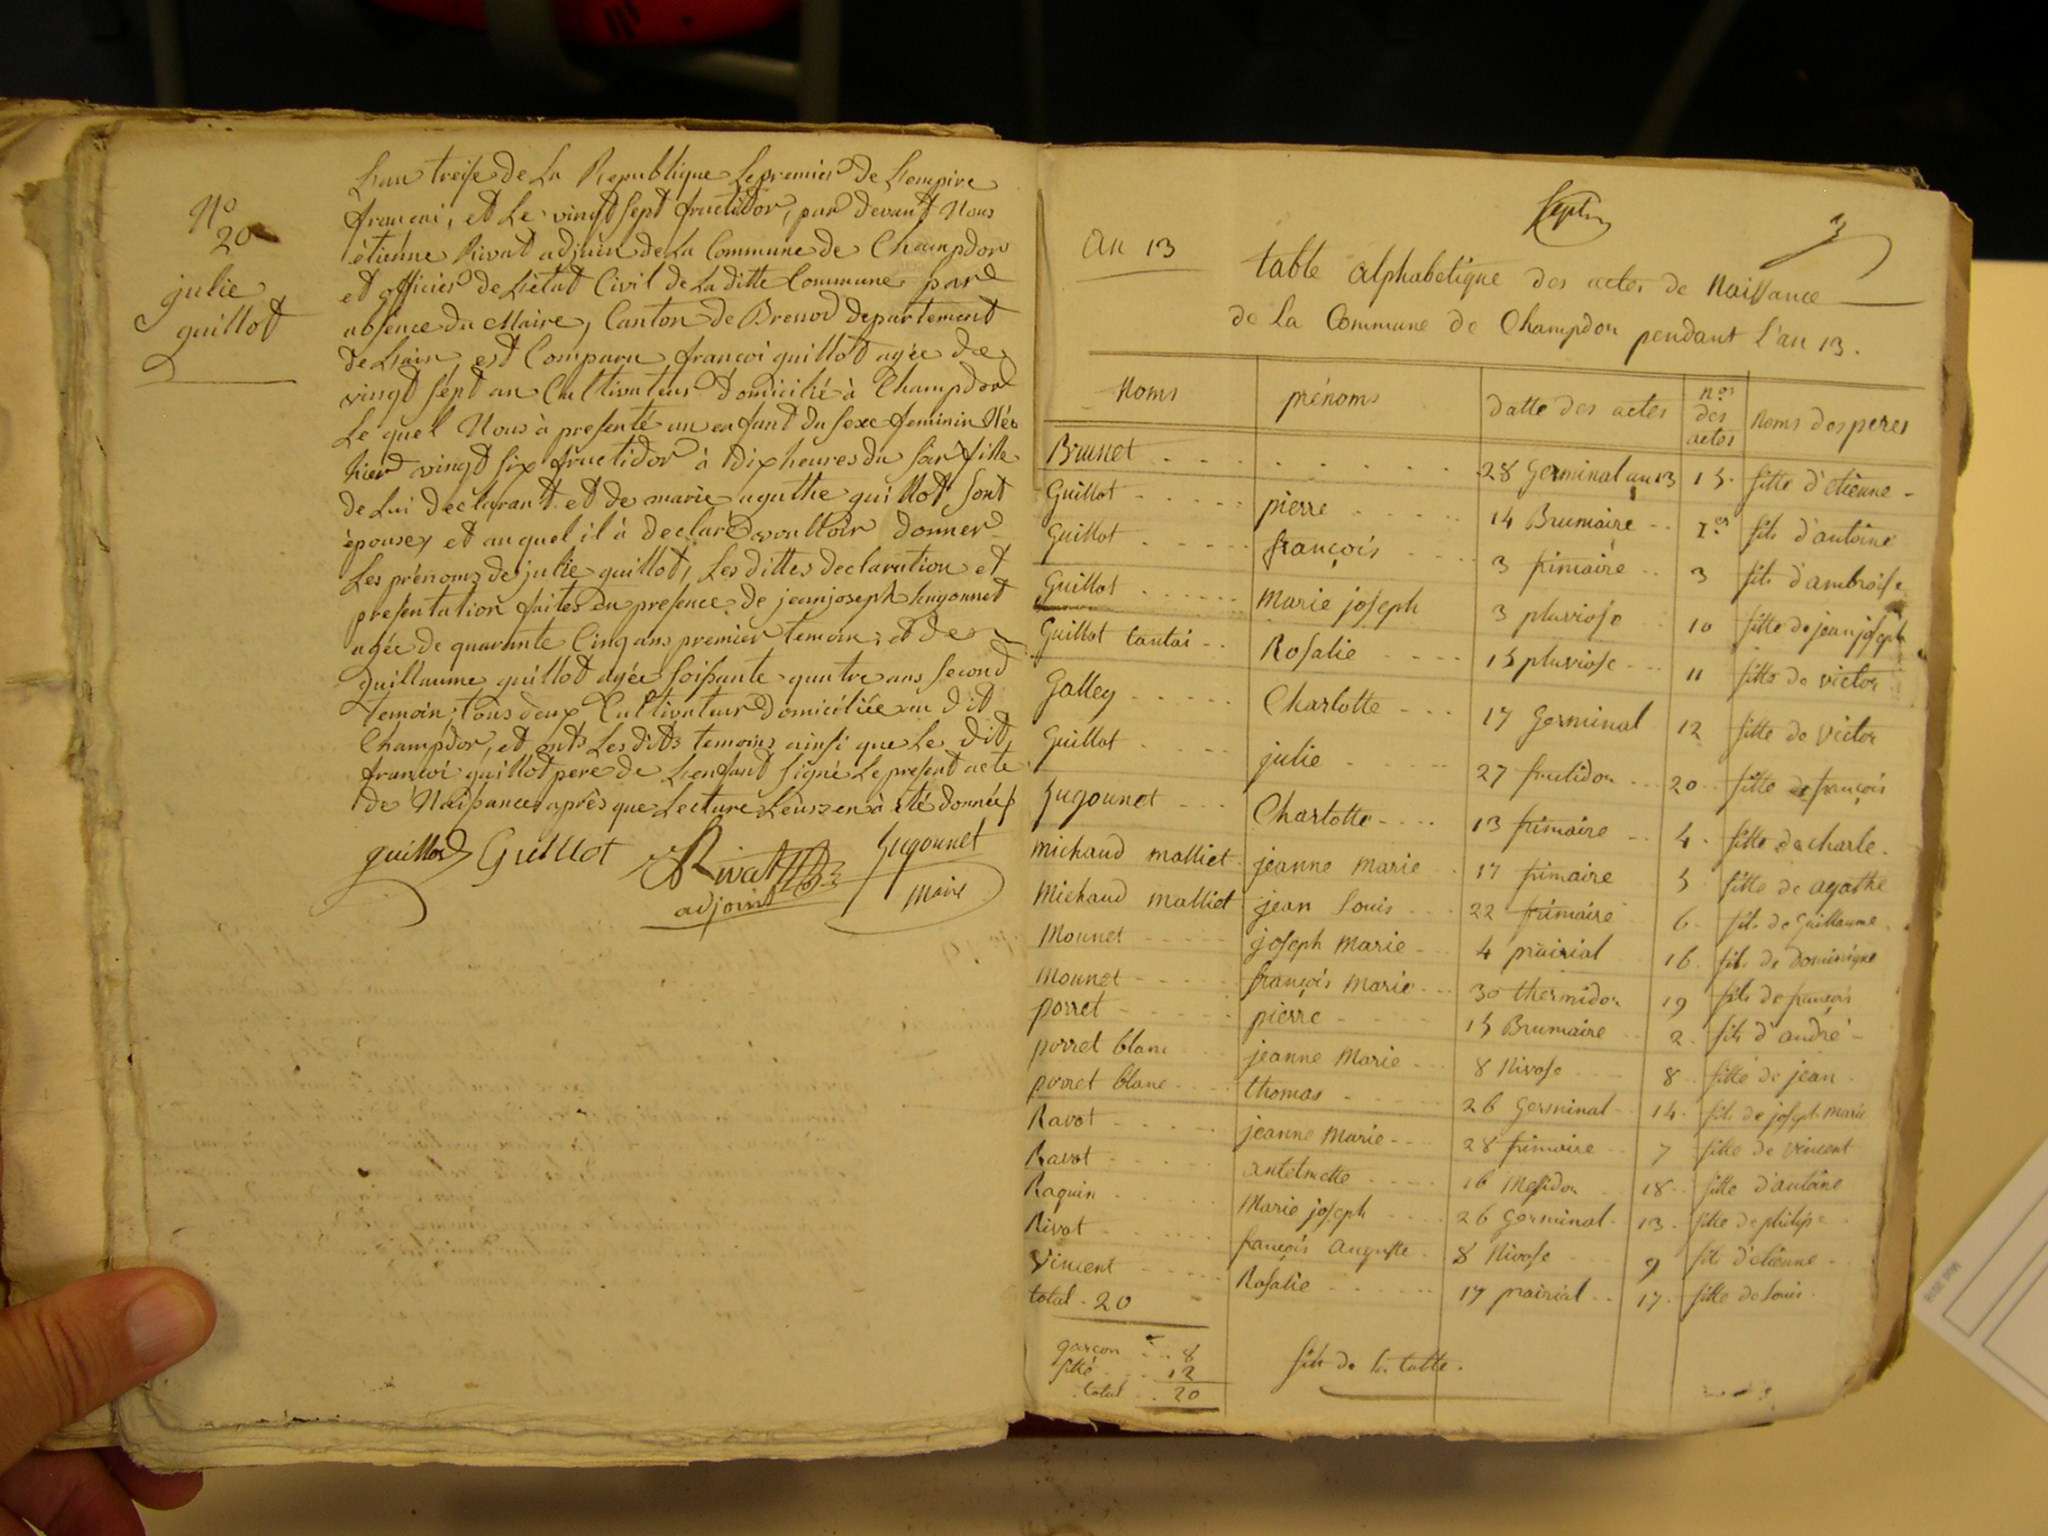 N° 20
julie
guillot
L'an treise de La Republique Le premier de L'empire
françai, et Le vingt sept fructidor, par devant Nous
étienne Rivat adjoin de La Commune de Champdor
et officier de L'etat Civil de La ditte Commune par
absence du Maire, Canton de Brenod departement
de L'ain est Comparu françoi guillot agée de
vingt sept an Cultivateur domicilié à Champdor
Le quel Nous à presenté un enfant du sexe feminin Née
hier vingt six fructidor à dix heures du soir fille
de Lui declarant et de marie agathe guillot sont
épouse, et auquel il à declaré voulloir donner
Les prénoms de julie guillot, Les dittes declaration et
presentation faites en presence de jean joseph hugonnet
agée de quarante Cinq ans premier temoin, et de
guillaume guillot agée soissante quatre ans second
temoin, tous deux Cultivateur domiciliée au dit
Champdor, et onts Les dits temoins ainsi que Le dit
françoi guillot pere de L'enfant signé Le present acte
de Naissance, après que Lecture Leurs en à eté donnée
guillot Guillot Rivat Hugonnet
adjoint maire
Sept
an 13
table alphabetique des actes de Naissance
de La Commune de Champdor pendant l'an 13.
Noms prénoms datte des actes nos des actes Noms des peres
Brunet 28 Germinal an 13 15 fille d'etienne
Guillot pierre 14 Brumaire 1er fils d'antoine
Guillot françois 3 frimaire 3 fils d'ambroise
Guillot Marie joseph 3 pluviose 10 fille de jean joseph
Guillot tantai Rosalie 15 pluviose 11 fille de victor
Galley Charlotte 17 Germinal 12 fille de Victor
Guillot julie 27 fructidor 20 fille de françois
hugonnet Charlotte 13 frimaire 4 fille de charle
michaud malliet jeanne Marie 17 frimaire 5 fille de agathe
Michaud malliet jean Louis 22 frimaire 6 fils de Guillaume
Monnet joseph Marie 4 prairial 16 fils de dominique
Monnet françois Marie 30 thermidor 19 fils de françois
porret pierre 15 Brumaire 2 fils d'andré
porret blanc jeanne Marie 8 Nivose 8 fille de jean
porret blanc thomas 26 Germinal 14 fils de joseph Marie
Ravot jeanne Marie 28 frimaire 7 fille de Vincent
Ravot antelmette 16 Messidor 18 fille d'antoine
Raquin Marie joseph 26 Germinal 13 fille de philipe
Rivat françois Auguste 8 Nivose 9 fils d'etienne
Vincent Rosalie 17 prairial 17 fille de Louis
total 20
garçon 8
fille 12
total 20
fin de la table.